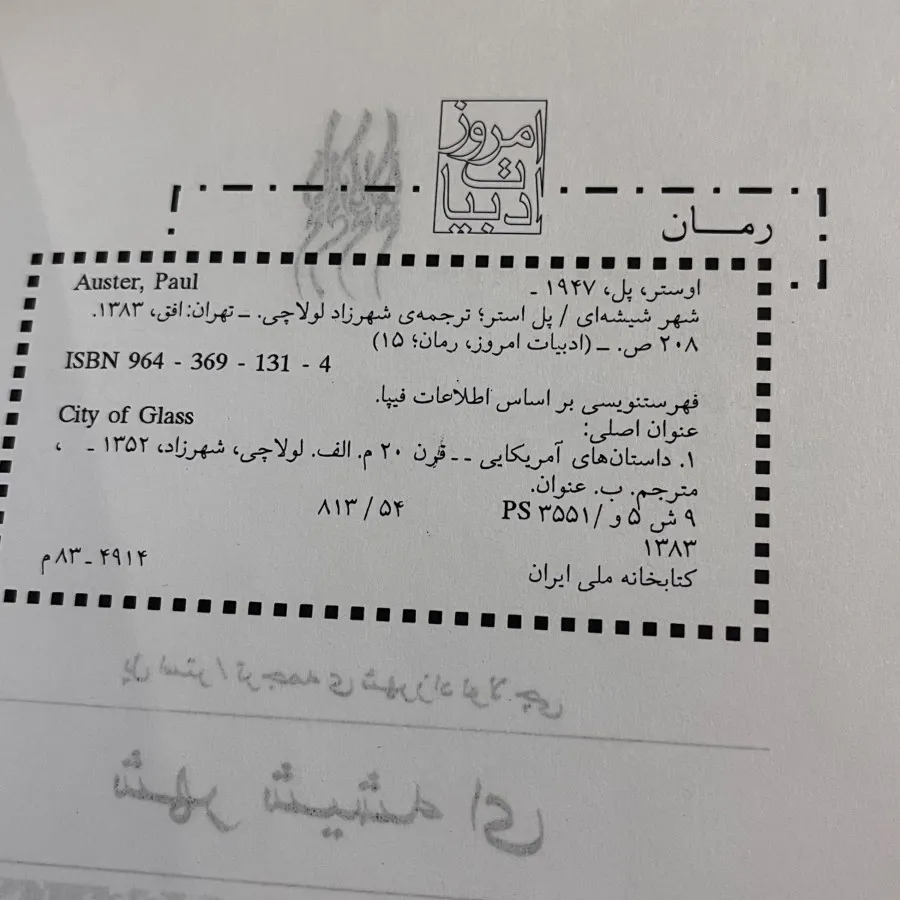 ادبیات امروز
رمـــان
اوستر، پل، ۱۹۴۷ ـ Auster, Paul
شهر شیشه‌ای / پل استر؛ ترجمه‌ی شهرزاد لولاچی. ــ تهران: افق، ۱۳۸۳.
۲۰۸ ص. ــ (ادبیات امروز، رمان؛ ۱۵)
ISBN 964 - 369 - 131 - 4
فهرستنویسی بر اساس اطلاعات فیپا.
عنوان اصلی: City of Glass
۱. داستان‌های آمریکایی ـ ـ قرن ۲۰ م. الف. لولاچی، شهرزاد، ۱۳۵۲ ـ ،
مترجم. ب. عنوان.
۹ ش ۵ و / PS ۳۵۵۱ ۸۱۳ / ۵۴
۱۳۸۳
کتابخانه ملی ایران ۴۹۱۴ ـ ۸۳ م
پل استر / ترجمه‌ی شهرزاد لولاچی
شهر شیشه ای